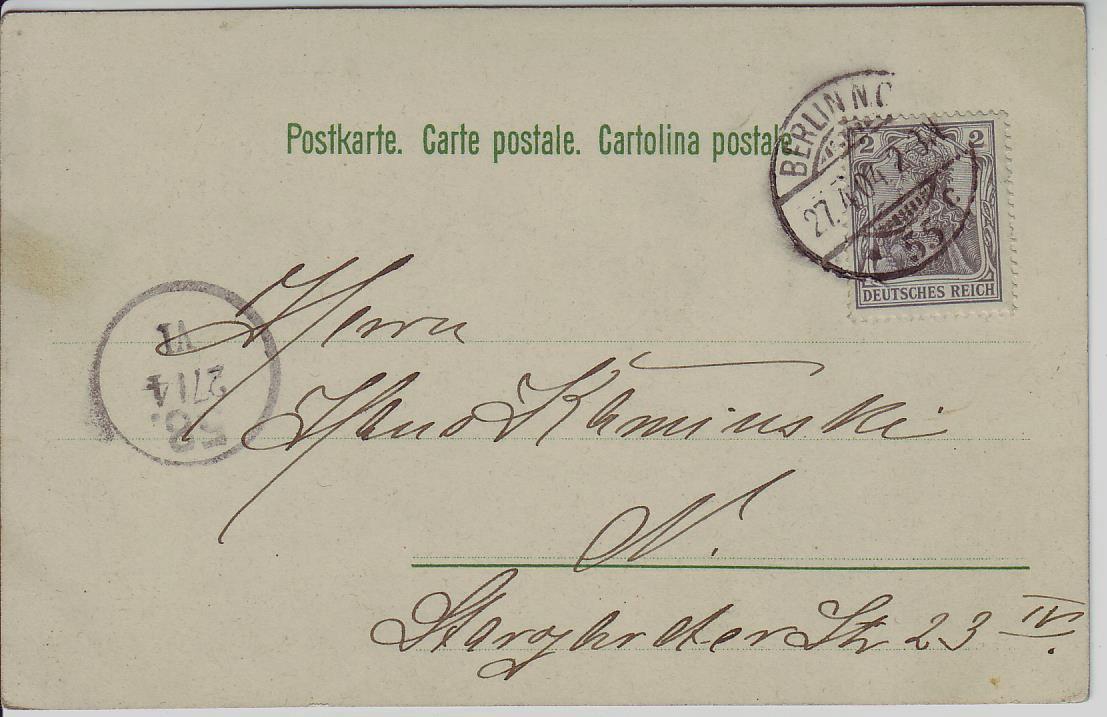 Postkarte. Carte postale. Cartolina postale
BERLIN N.O.
27.4.04. 7-8N
* 55 c.
2 2
DEUTSCHES REICH
Herrn
Hans Kaminski
N.
Stargarder Str 23 IV.
58.
27/4
VI